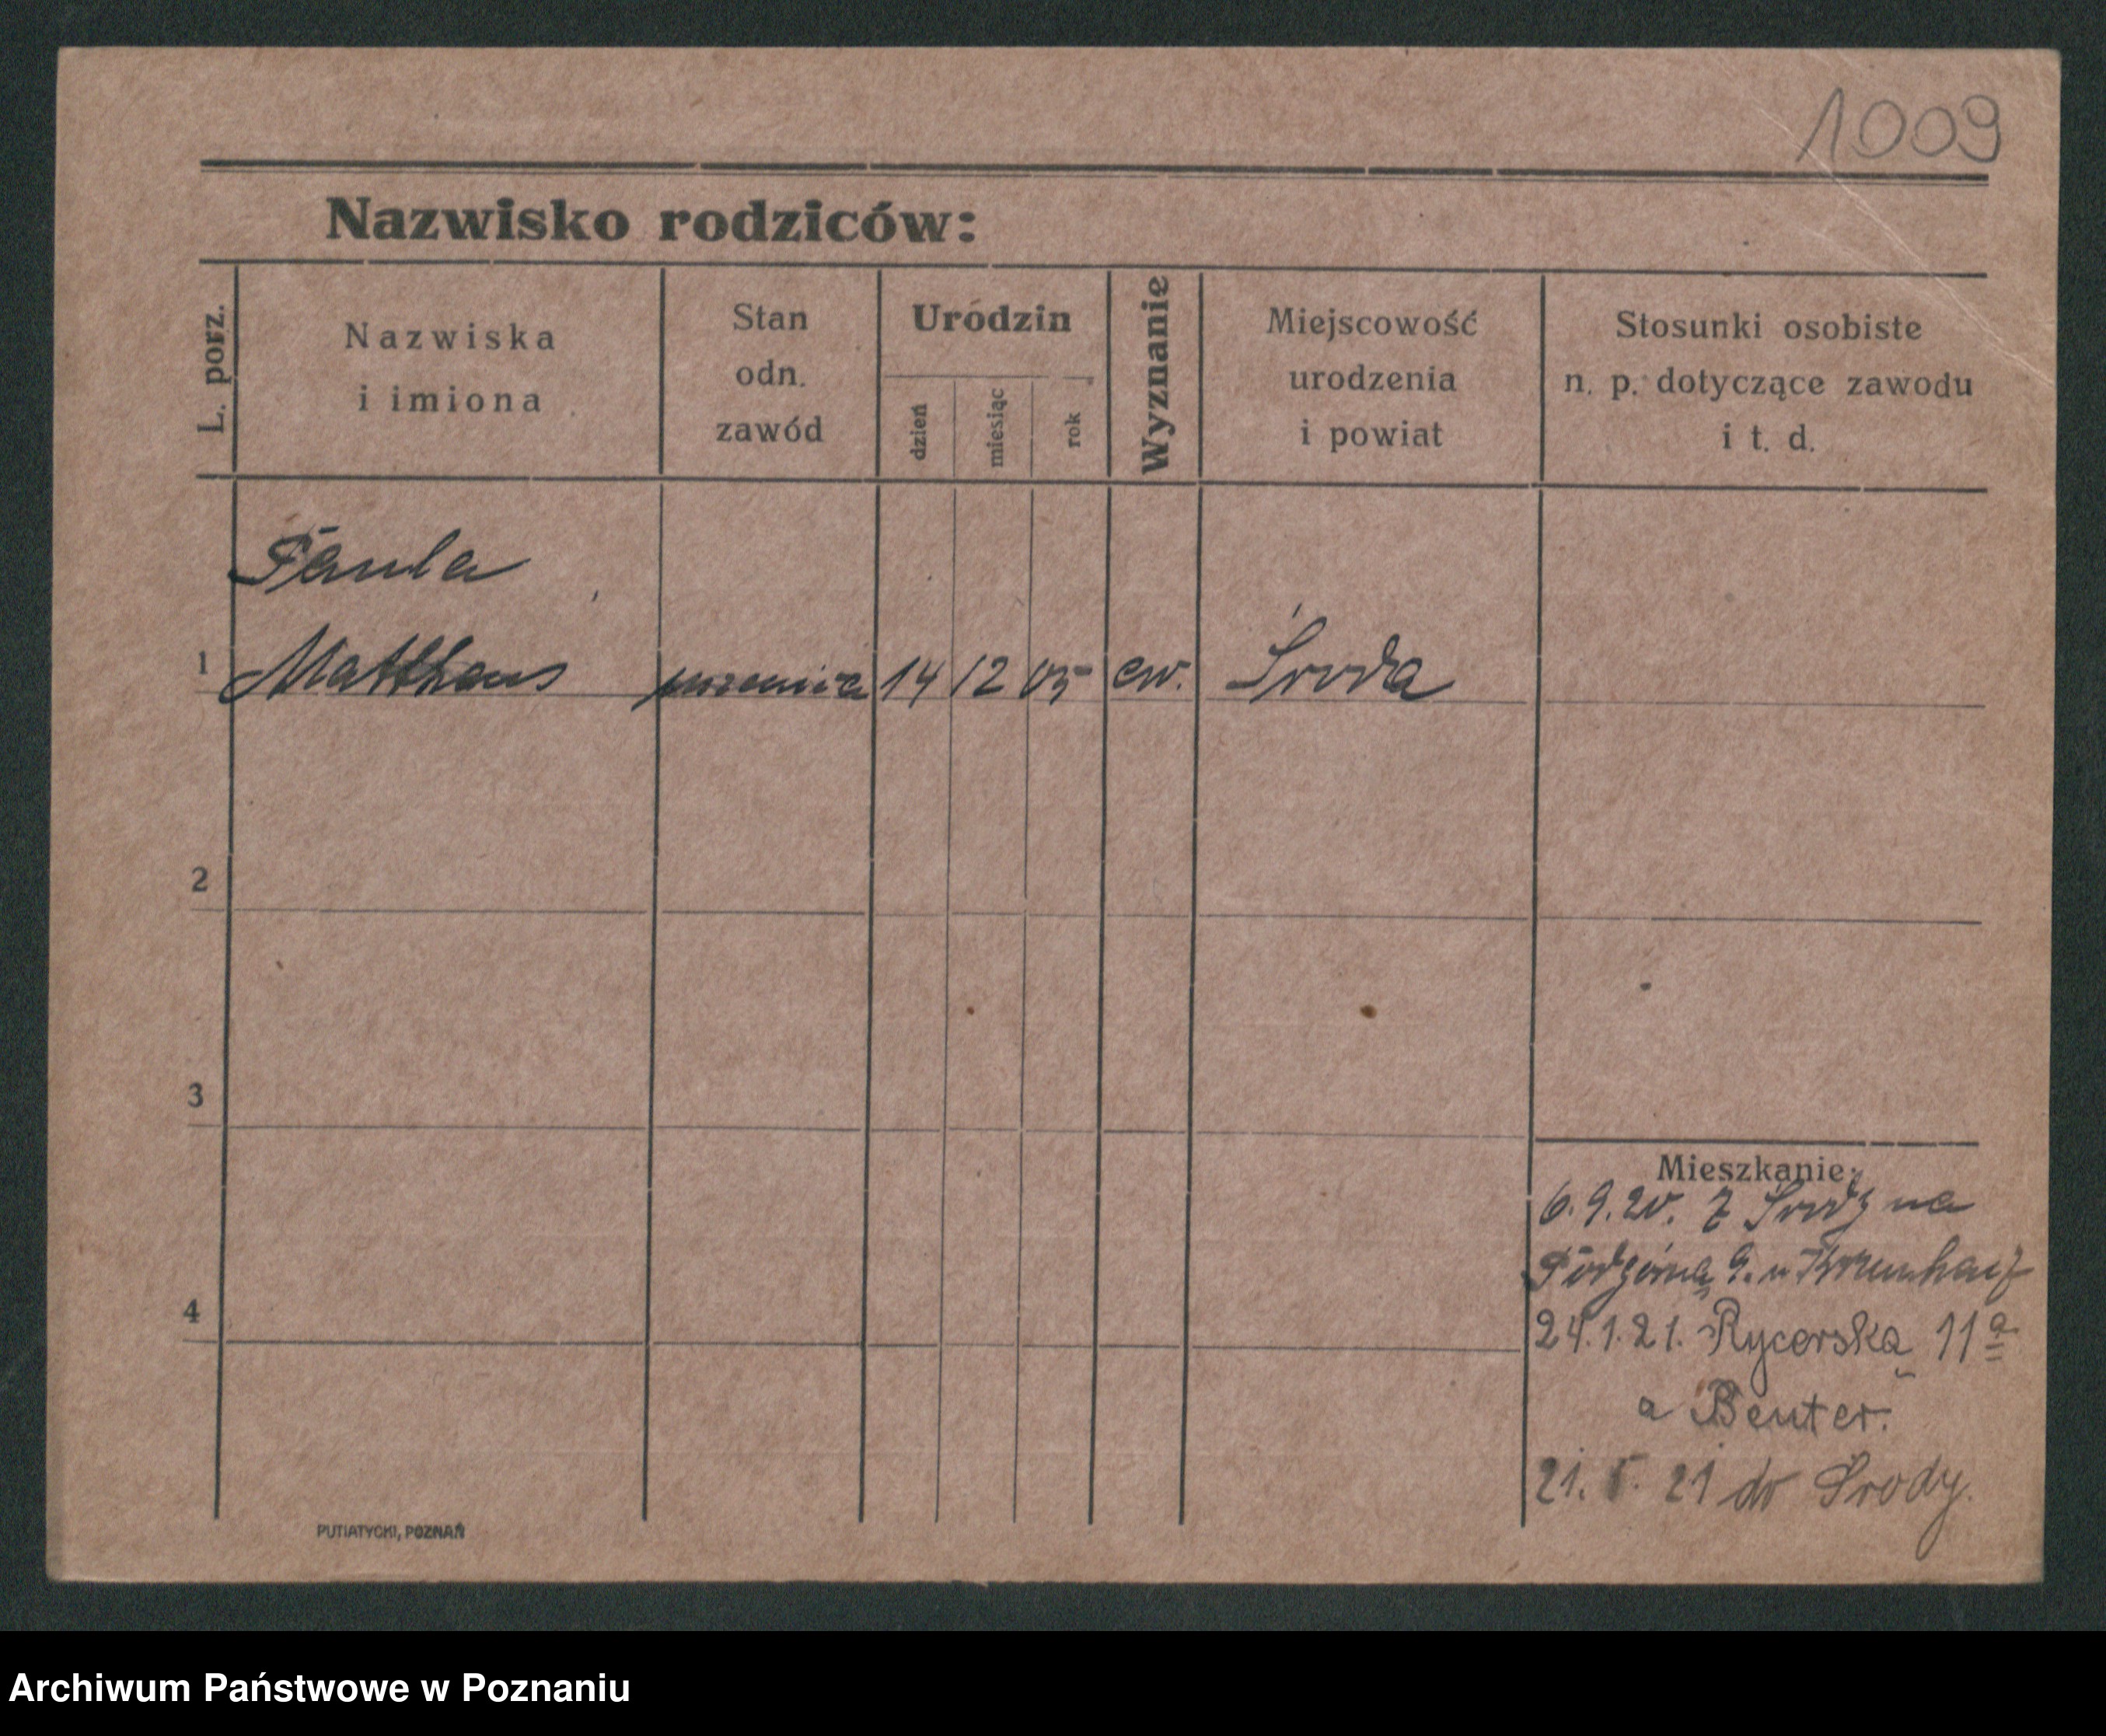 1009
Nazwisko rodziców:
L. porz.
Nazwiska
i imiona
Stan
odn.
zawód
Uródzin
dzień
miesiąc
rok
Wyznanie
Miejscowość
urodzenia
i powiat
Stosunki osobiste
n. p. dotyczące zawodu
i t. d.
Paula
1 Matthaus 14 12 05 ew. Środa
2
3
4
Mieszkanie:
6.9.20. z Środy na
Podgórną 9. u
24.1.21. Rycerska 11a
a Beuter.
21. 5. 21 do Środy.
PUTIATYCKI, POZNAŃ
Archiwum Państwowe w Poznaniu